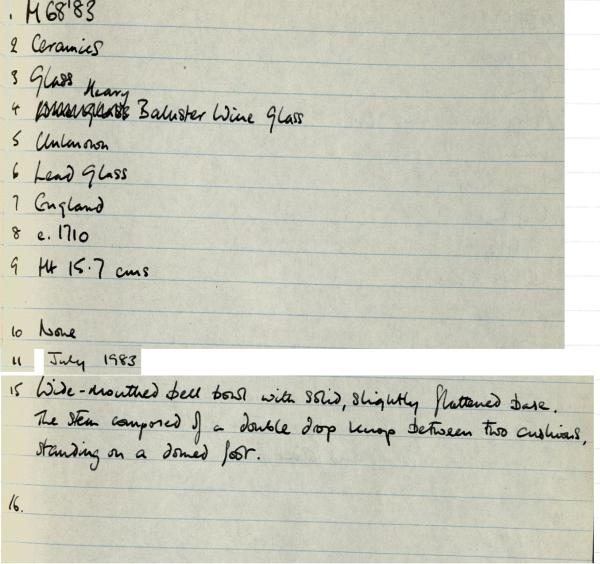 1 M68'83
2 Ceramics
3 Glass
4 Heavy Baluster Wine Glass
5 Unknown
6 Lead Glass
7 England
8 c. 1710
9 Ht 15.7 cms
10 None
11 July 1983
15 Wide-mouthed bell bowl with solid, slightly flattened base.
The stem composed of a double drop knop between two cushions,
standing on a domed foot.
16.